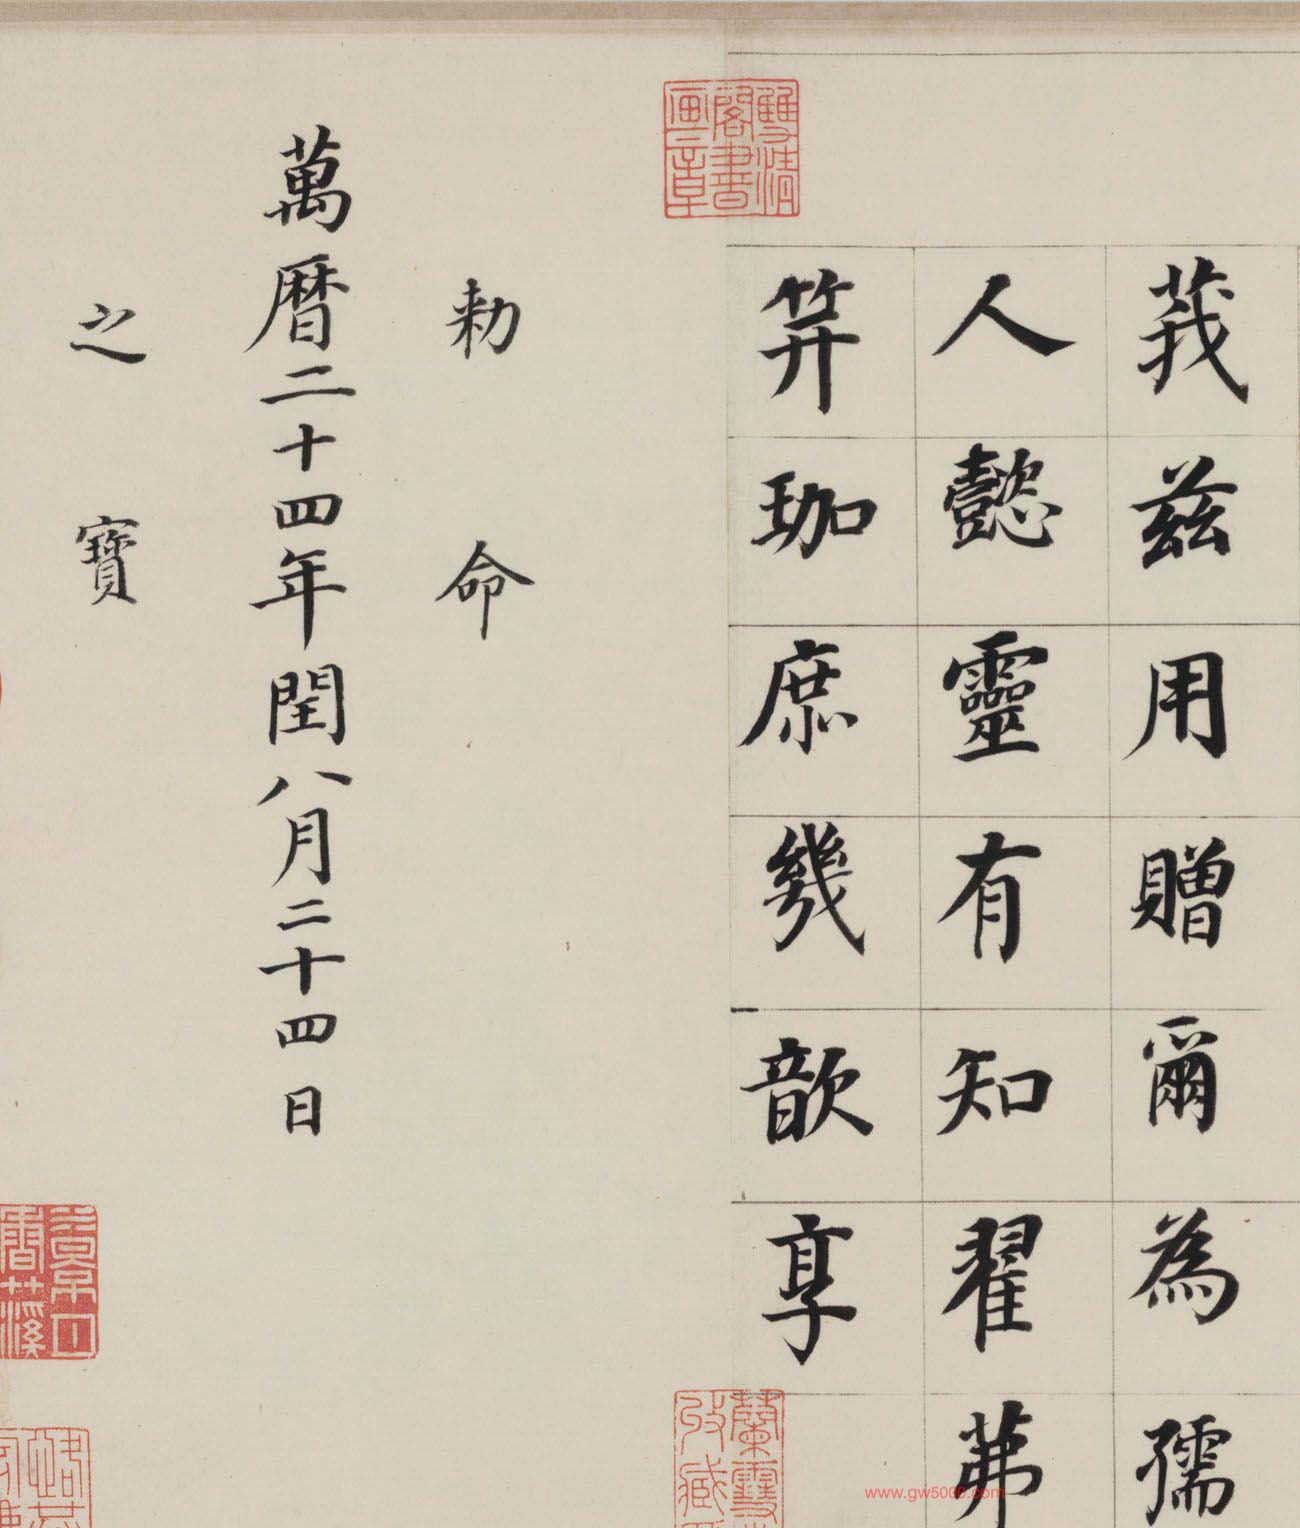 莪兹用贈爾為孺
人懿靈有知翟茀
笄珈庶幾歆享
勅命
萬曆二十四年閏八月二十四日
之寶
雙清閣書画章
www.gw5000.com